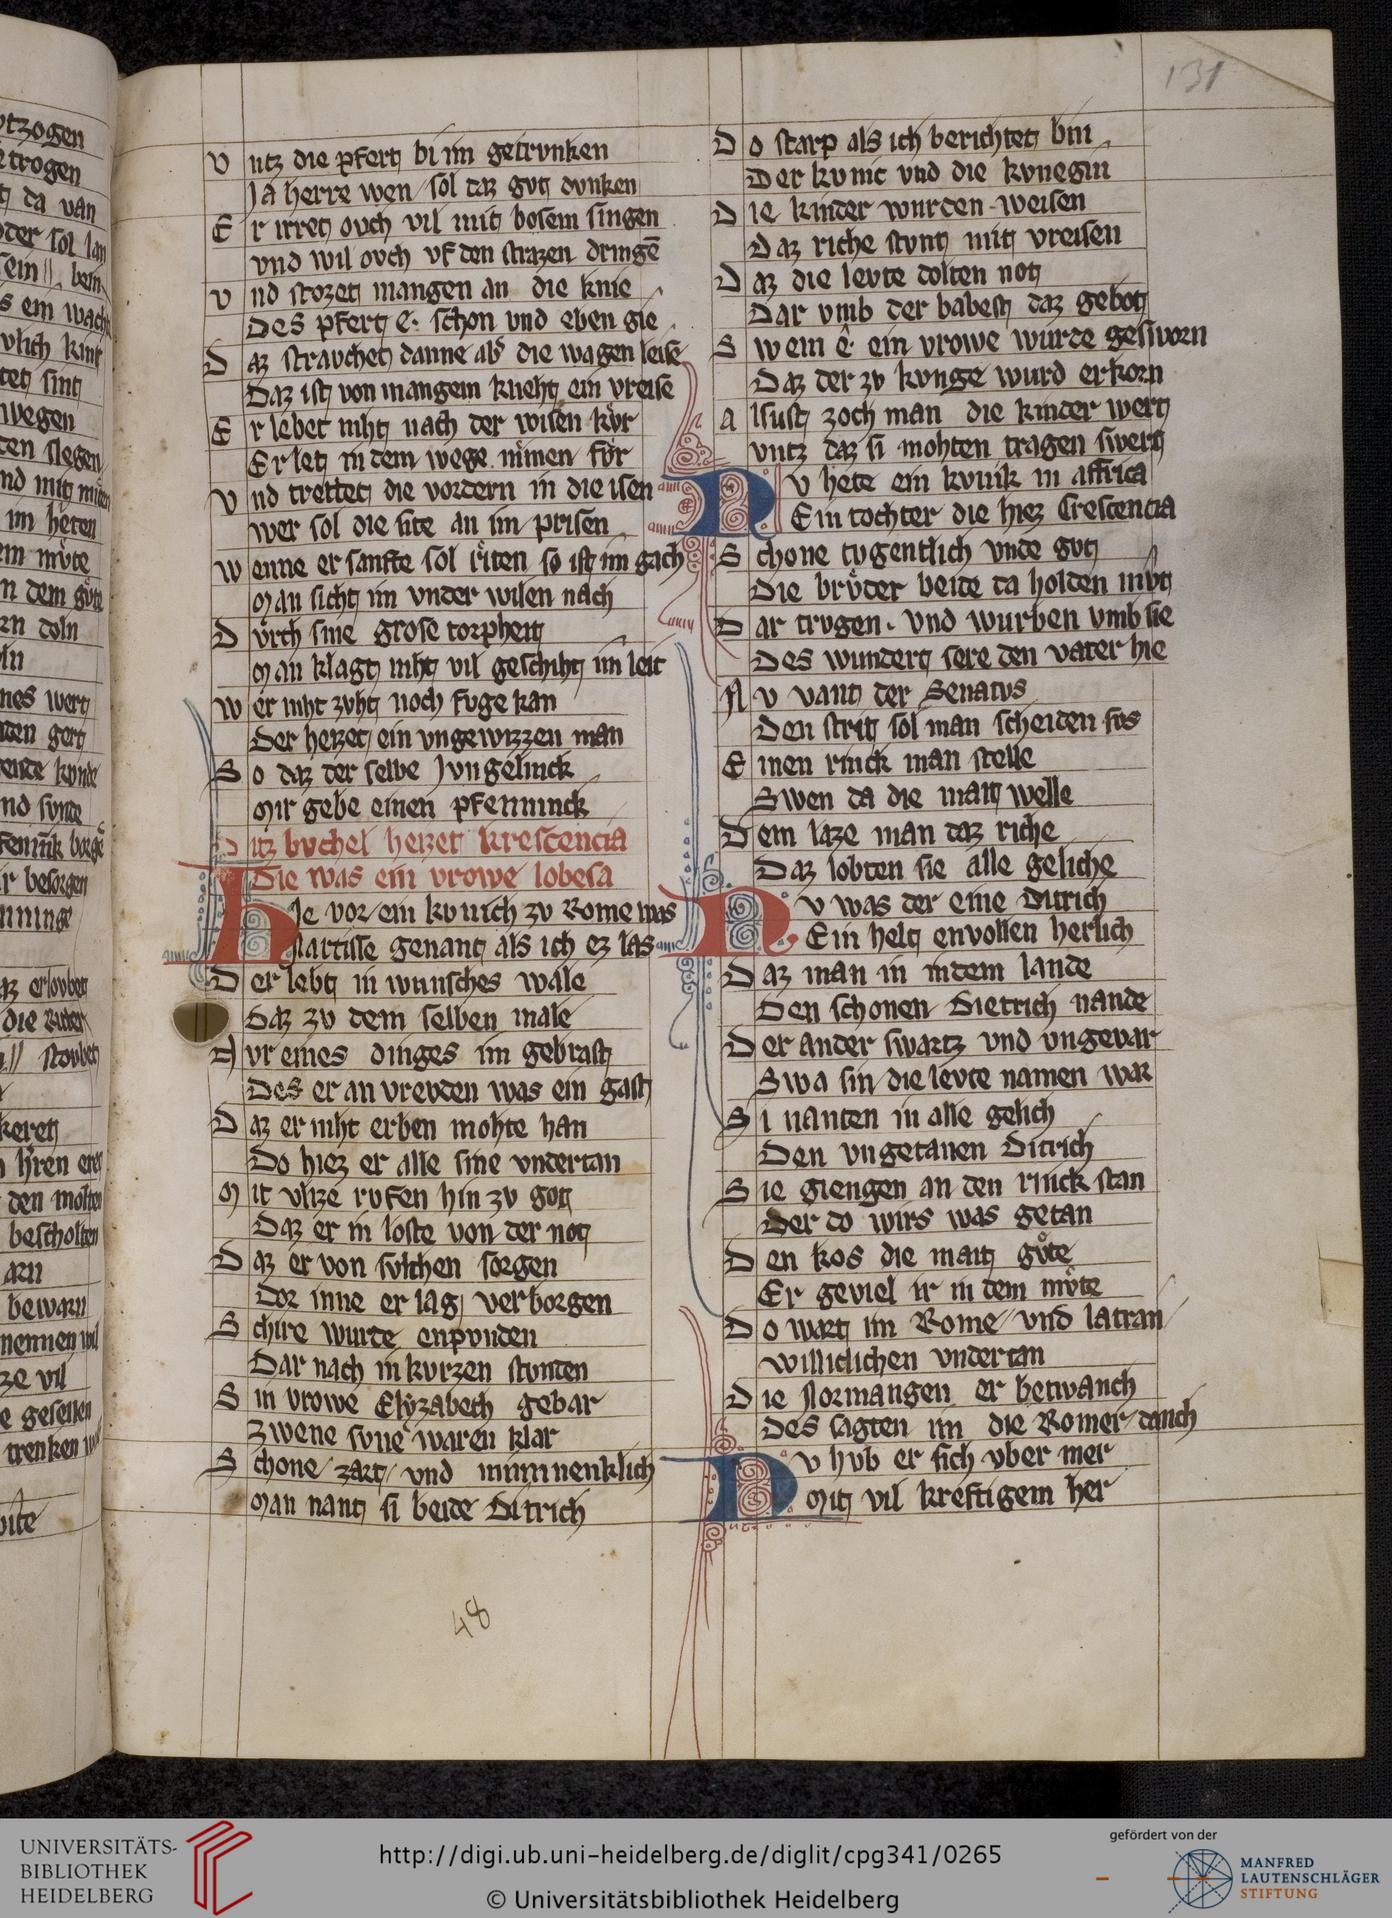 131
Vntz die pfert bi im getrvnken
Ja herre wen sol daz gvt dvnken
Er irret ovch vil mit bosem singen
vnd wil ovch vf den strazen dringē
Vnd stozet mangen an die knie
Des pfert e. schon vnd eben gie
Daz stravchet danne ab die wagen leise
Daz ist von mangem kneht ein vreise
Er lebet niht nach der wisen kvͦr
Er let in dem wege nimen fvͦr
Vnd trettet die vordern in die isen
wer sol die site an im prisen
Wenne er sanfte sol riten so ist im gach
Man sicht im vnder wilen nach
Dvrch sine grose torpheit
Man klagt niht vil geschiht im leit
Wer niht zvht noch fvge kan
Der heizet ein vngewizzen man
So daz der selbe Jvngelinck
Mir gebe einen pfenninck
Ditz bvchel heizet krescencia
Die was ein vrowe lobesa
Hie vor ein kvnich zv Rome was
Nartisse genant als ich ez las
Der lebt in wunsches wale
Daz zv dem selben male
Nvr eines dinges im gebrast
Des er an vrevden was ein gast
Daz er niht erben mohte han
Do hiez er alle sine vndertan
Mit vlize rvfen hin zv got
Daz er in loste von der not
Daz er von svlchen sorgen
Dor inne er lag verborgen
Schire wurde enpvnden
Dar nach in kvrzen stvnden
Sin vrowe Elyzabeth gebar
Zwene svne waren klar
Schone zart vnd minnenklich
Man nant si beide Ditrich
48
Do starp als ich berichtet bin
Der kvnic vnd die kvnegin
Die kinder wurden weisen
Daz riche stvnt mit vreisen
Daz die levte dolten not
Dar vmb der babest daz gebot
Swem e. ein vrowe wurde gesworn
Daz der zv kvnge wurd erkorn
Alsust zoch man die kinder wert
vntz daz si mohten tragen swert
Nv hete ein kvnik in affrica
Ein tochter die hiez Crescencia
Schone tvgentlich vnde gvt
Die brvͦder beide da holden mvt
Dar trvgen. vnd wurben vmb sie
Des wundert sere den vater hie
Nv vant der Senatvs
Den strit sol man scheiden svs
Einen rinck man stelle
Swen da die mait welle
Dem laze man daz riche
Daz lobten sie alle geliche
Nv was der eine Ditrich
Ein helt envollen herlich
Daz man in indem lande
Den schonen Dietrich nande
Der ander swartz vnd vngevar
Swa sin die levte namen war
Si nanten in alle gelich
Den vngetanen Ditrich
Sie giengen an den rinck stan
Der do wirs was getan
Den kos die mait gvͦte
Er geviel ir in dem mvͦte
Do wart im Rome vnd latran
williclichen vndertan
Die Normangen er betwanch
Des sagten im die Romer danch
Nv hvb er sich vber mer
Mit vil kreftigem her
UNIVERSITÄTS-
BIBLIOTHEK
HEIDELBERG
http://digi.ub.uni-heidelberg.de/diglit/cpg341/0265
© Universitätsbibliothek Heidelberg
gefördert von der
MANFRED
LAUTENSCHLÄGER
STIFTUNG